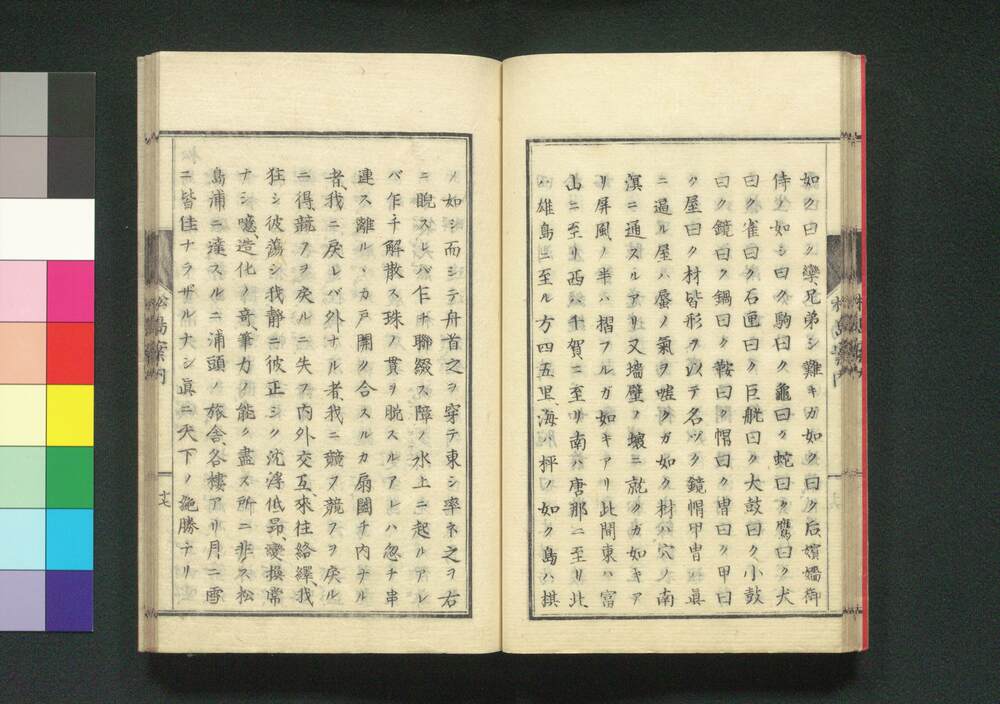 如ク曰ク欒兄弟シ難キガ如ク曰ク后嬪嬙御
侍ノ如シ曰ク駒曰ク龜曰ク蛇曰ク鷹曰ク犬
曰ク雀曰ク石匣曰ク巨觥曰ク大鼓曰ク小鼓
曰ク鏡曰ク鍋曰ク鞍曰ク帽曰ク冑曰ク甲曰
ク屋曰ク材皆形ヲ以テ名ヅク鏡帽甲冑ハ眞
ニ逼ル屋ハ蜃ノ氣ヲ嘘クガ如ク材ハ穴ノ南
溟ニ通スルアリ又墻壁ノ壊ニ就クガ如キア
リ屏風ノ半ハ摺フルガ如キアリ此間東ハ富
山ニ至リ西ハ千賀ニ至リ南ハ唐那ニ至リ北
ハ雄島ニ至ル方四五里海枰ノ如ク島ハ棋
ノ如シ而シテ舟首之ヲ穿テ東シ率ネ之ヲ右
ニ睨スレバ乍チ聯綴ス障ノ水上ニ起ルアレ
バ乍チ解散ス珠ノ貫ヲ脱スルアレハ忽チ串
連ス離ルヽカ戸開ク合スルカ扇闔チ内ナル
者我ニ戻レバ外ナル者我ニ競ヲ競フヲ戻ル
ニ得競フヲ戻ルニ失フ内外交互來往絡繹我
狂シ彼蕩シ我靜ニ彼正シク沈浮低昻變換常
ナシ噫造化ノ竒筆力ノ能ク盡ス所ニ非ス松
島浦ニ達スルニ浦頭ノ旅舎各樓アリ月ニ雪
ニ皆佳ナラザルナシ眞ニ天下ノ絶勝ナリ
松島案内
十七